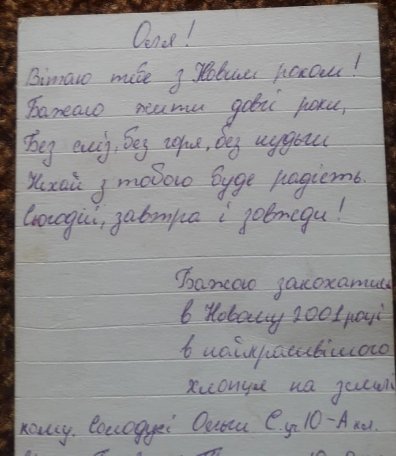 Оля!
Вітаю тебе з Новим роком!
Бажаю жити довгі роки,
Без сліз, без горя, без нудьги
Нехай з тобою буде радість.
Сьогодні, завтра і завжди!
Бажаю закохатись
в Новому 2001 році
в найкрасивішого
хлопця на землі
кому. Солодухі Ользі С. уч 10-А кл.